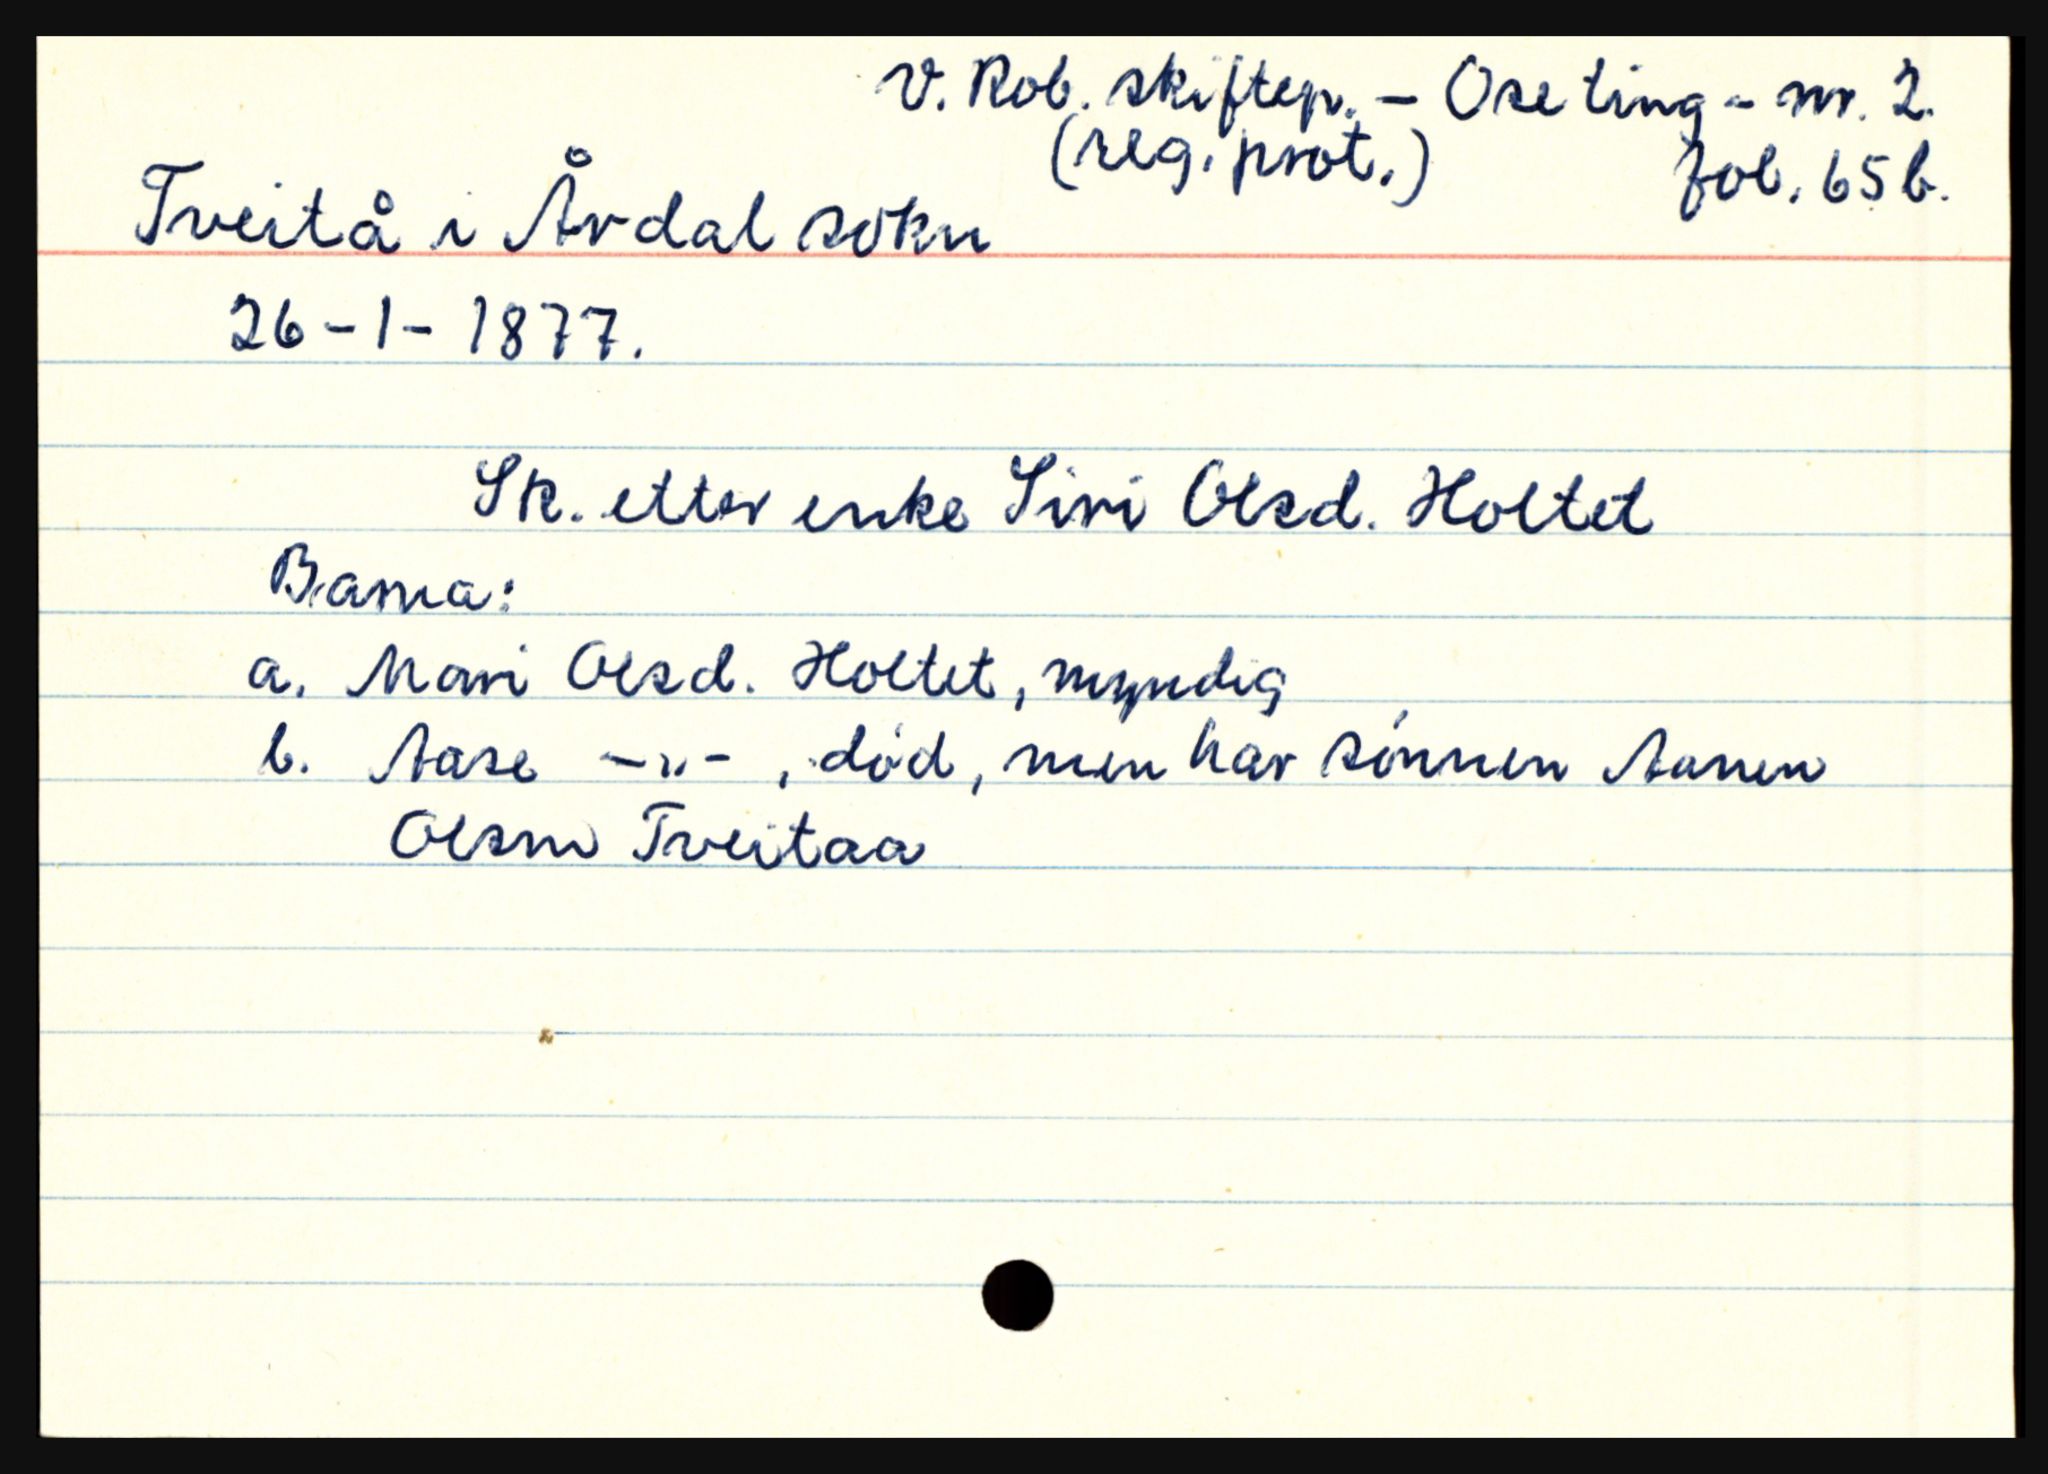 V. Rob. skiftep. - Ose ting - nr. 2.
(reg. prot.) fol. 65 b.
Tveitå i Årdal sokn
26-1-1877.
Sk. etter enke Siri Olsd. Holtet
Barna:
a. Mari Olsd. Holtet, myndig
b. Aase -"- , död, men har sönnen Aanen
Olsen Tveitaa